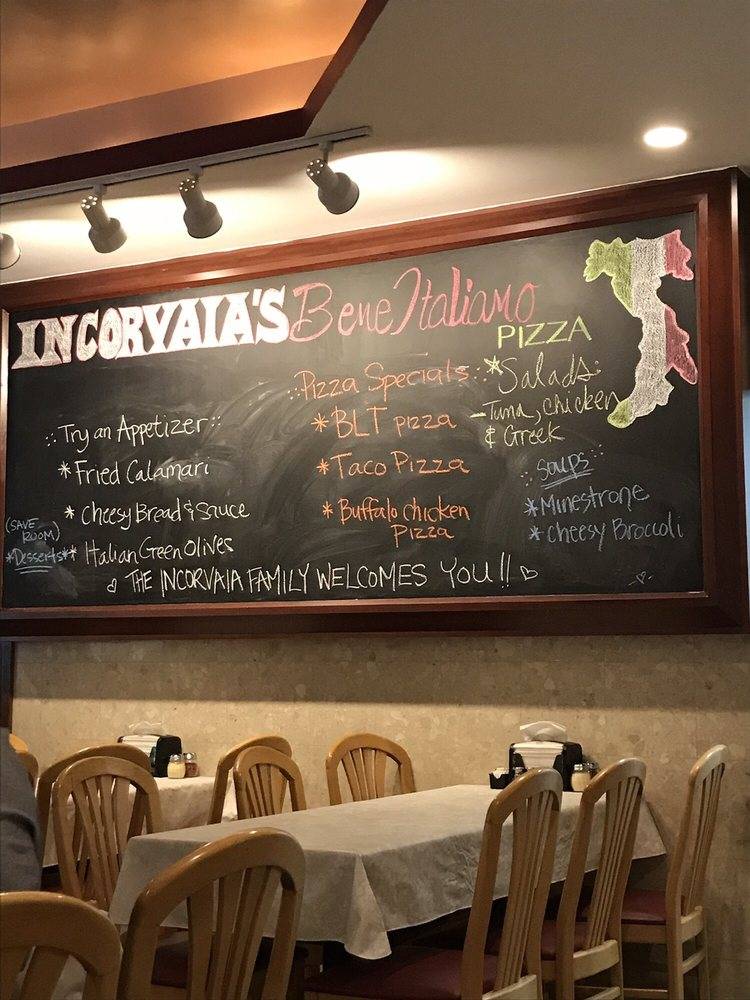 INCORVAIA'S Bene Italiano
PIZZA
Try an Appetizer
*Fried Calamari
*Cheesy Bread & Sauce
*Italian Green Olives
(SAVE
ROOM)
*Desserts*
Pizza Specials
*BLT pizza
*Taco Pizza
*Buffalo chicken
Pizza
*Salads:
-Tuna, chicken
& Greek
Soups
*Minestrone
*Cheesy Broccoli
THE INCORVAIA FAMILY WELCOMES YOU!!